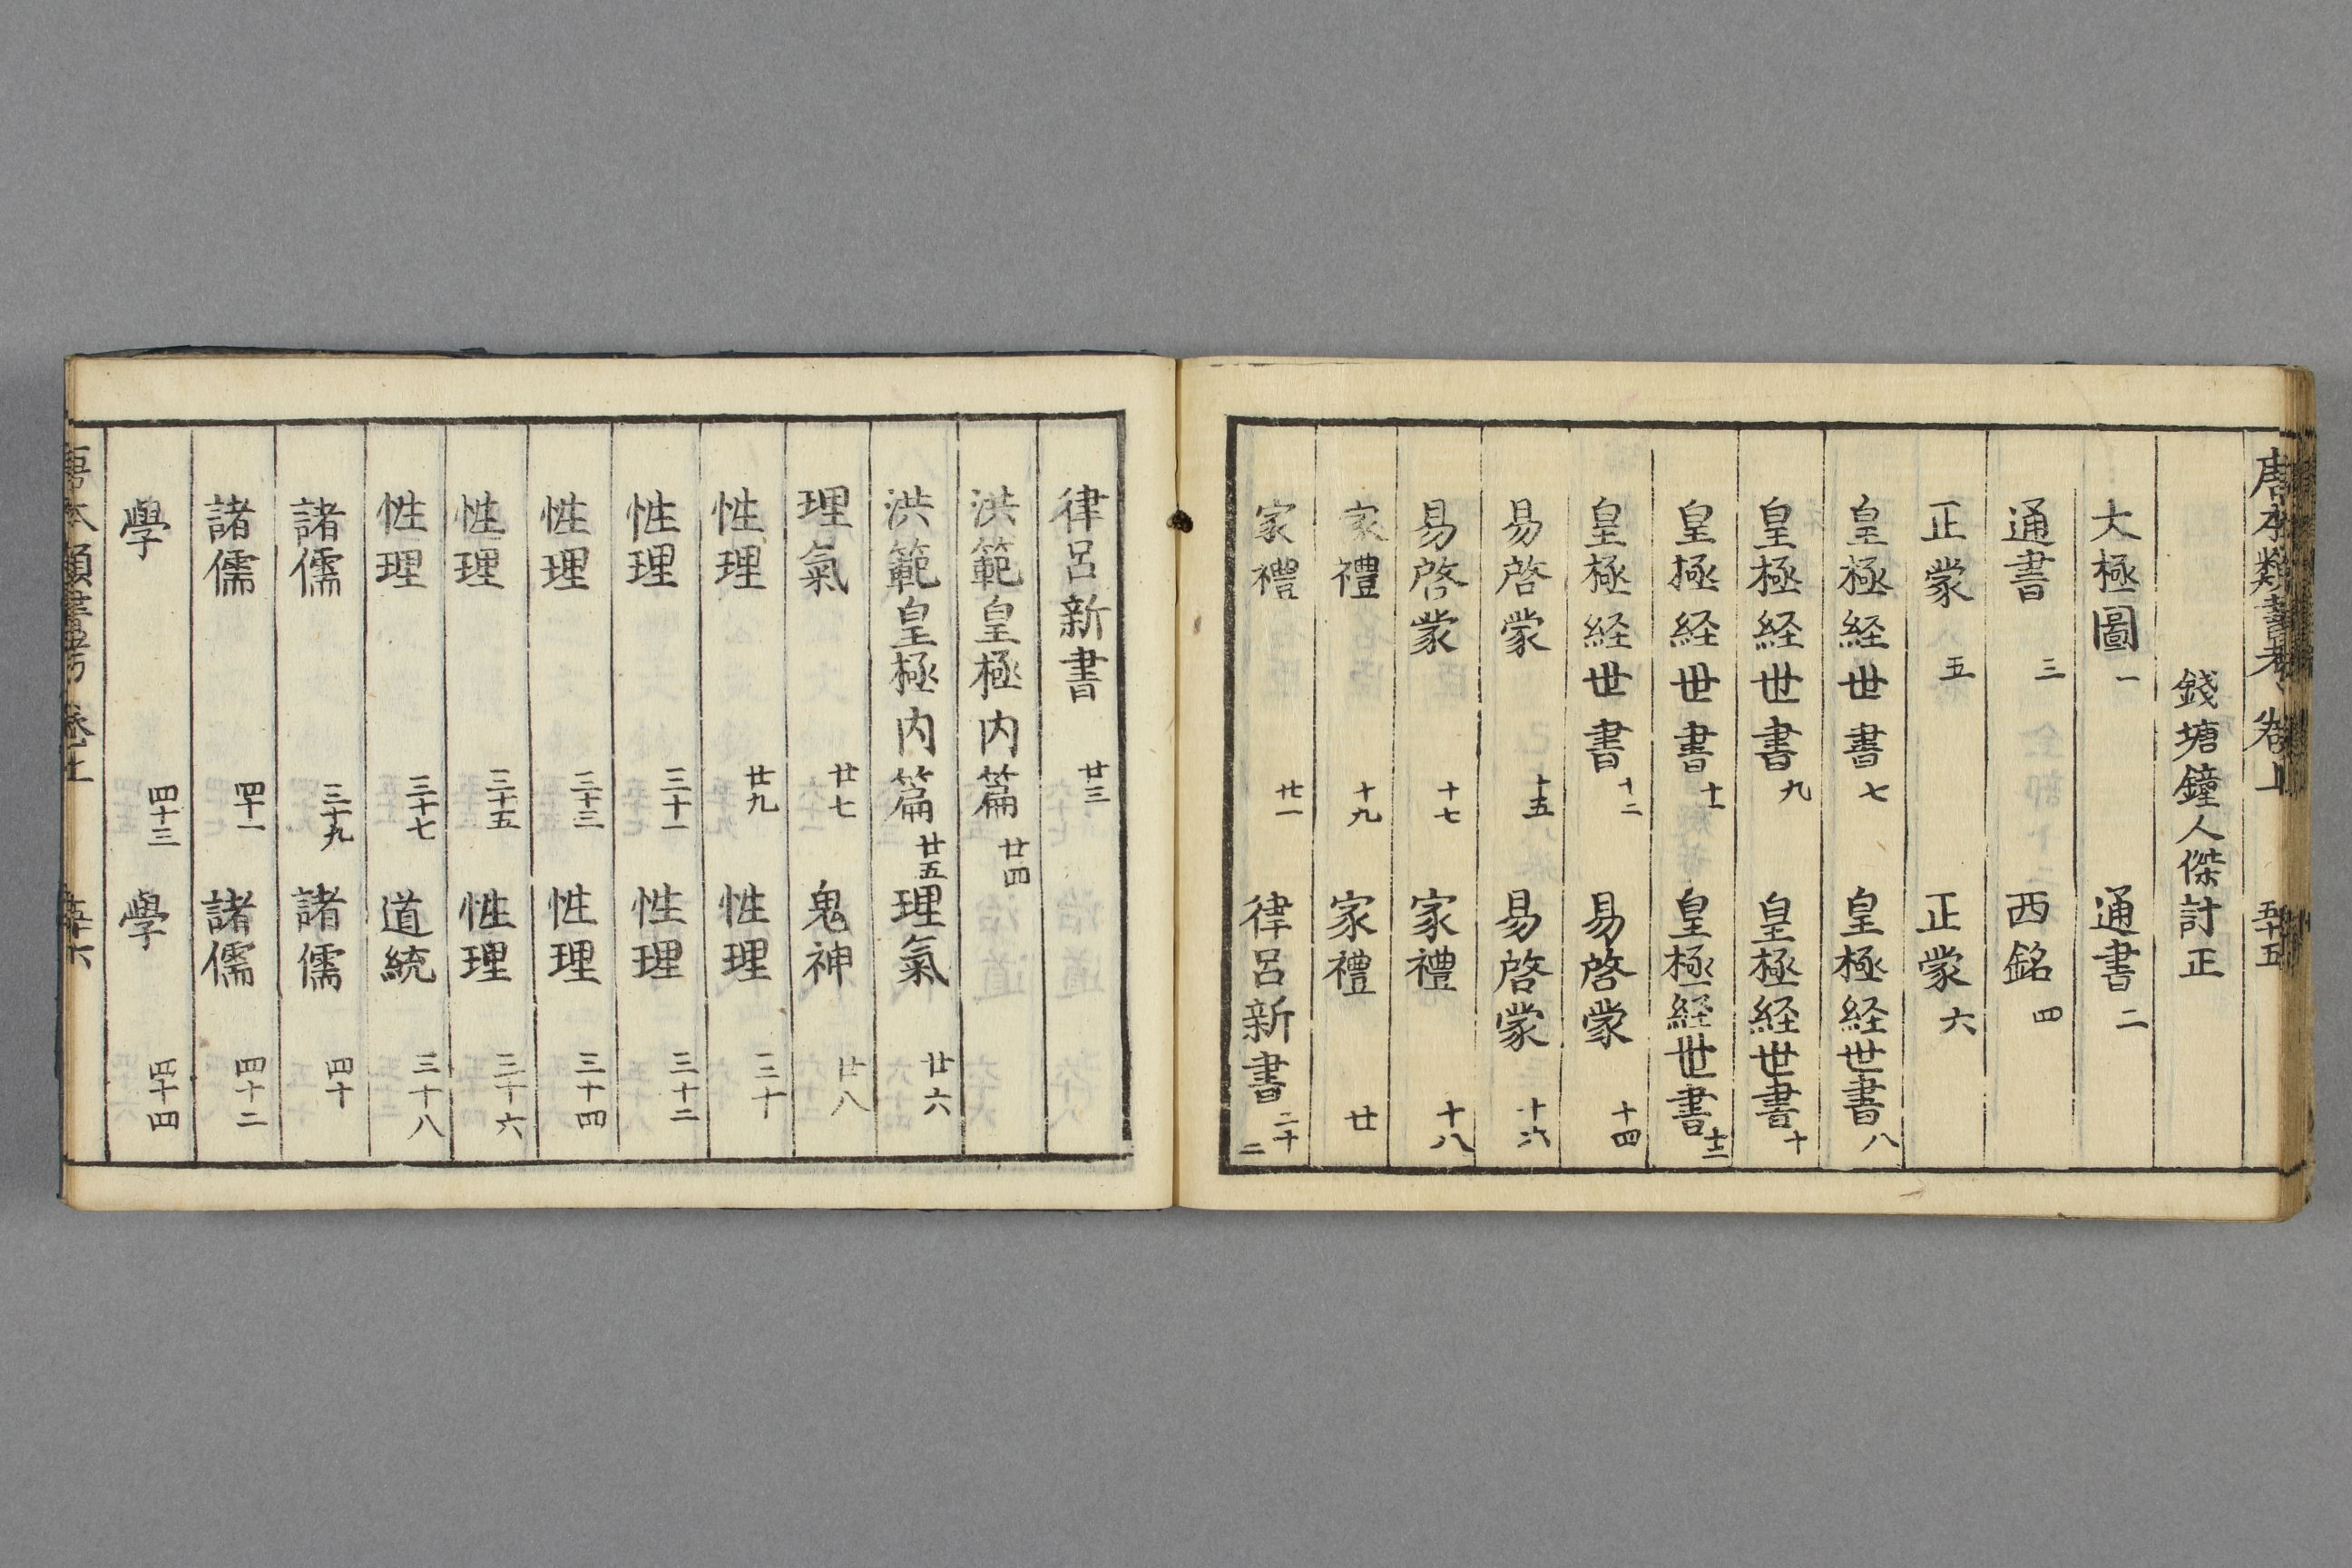 唐本類書考 卷上 五十五
錢塘鐘人傑訂正
大極圖 一 通書 二
通書 三 西銘 四
正蒙 五 正蒙 六
皇極経世書 七 皇極経世書 八
皇極経世書 九 皇極経世書 十
皇極経世書 十一 皇極経世書 十三
皇極経世書 十二 易啓蒙 十四
易啓蒙 十五 易啓蒙 十六
易啓蒙 十七 家禮 十八
家禮 十九 家禮 廿
家禮 廿一 律呂新書 二十二
律呂新書 廿三
洪範皇極内篇 廿四
洪範皇極内篇 廿五 理氣 廿六
理氣 廿七 鬼神 廿八
性理 廿九 性理 三十
性理 三十一 性理 三十二
性理 三十三 性理 三十四
性理 三十五 性理 三十六
性理 三十七 道統 三十八
諸儒 三十九 諸儒 四十
諸儒 四十一 諸儒 四十二
學 四十三 學 四十四